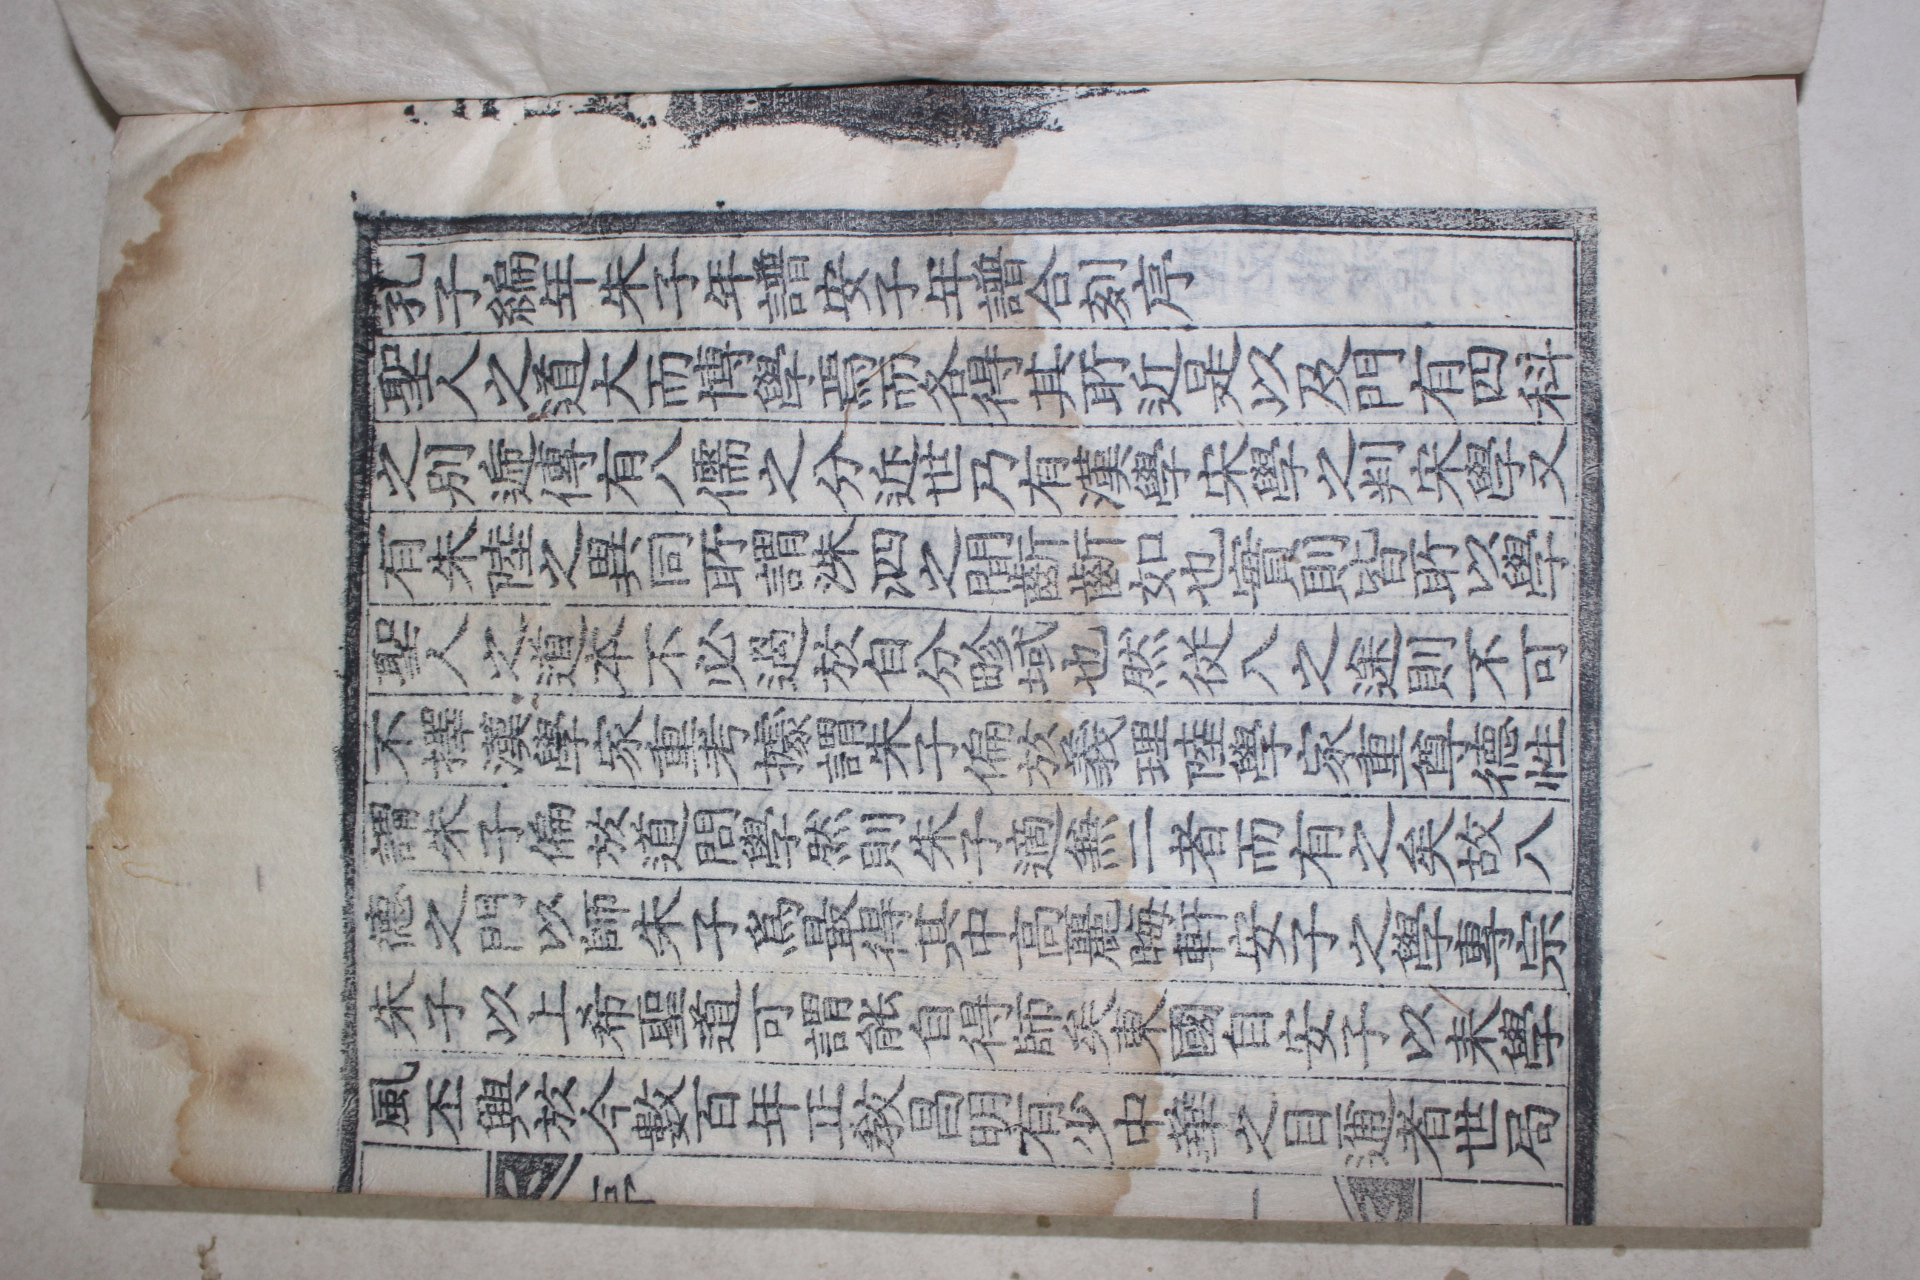 孔子編年朱子年譜安子年譜合刻序
聖人之道大而博學焉而各得其所近是以及門有四科
之別逓傳有八儒之分近世乃有漢學宋學之判宋學又
有朱陸之異同所謂洙泗之間齗齗如也實則皆所以學
聖人之道本不必過於自分畛域也然從入之途則不可
不擇漢學家重考據謂朱子偏於義理陸學家重尊德性
謂朱子偏於道問學然則朱子適兼二者而有之矣故入
德之門以師朱子爲最得其中高麗晦軒安子之學專宗
朱子以上希聖道可謂能自得師矣東國自安子以來學
風丕興於今數百年正敎昌明有少中華之目邇者世局